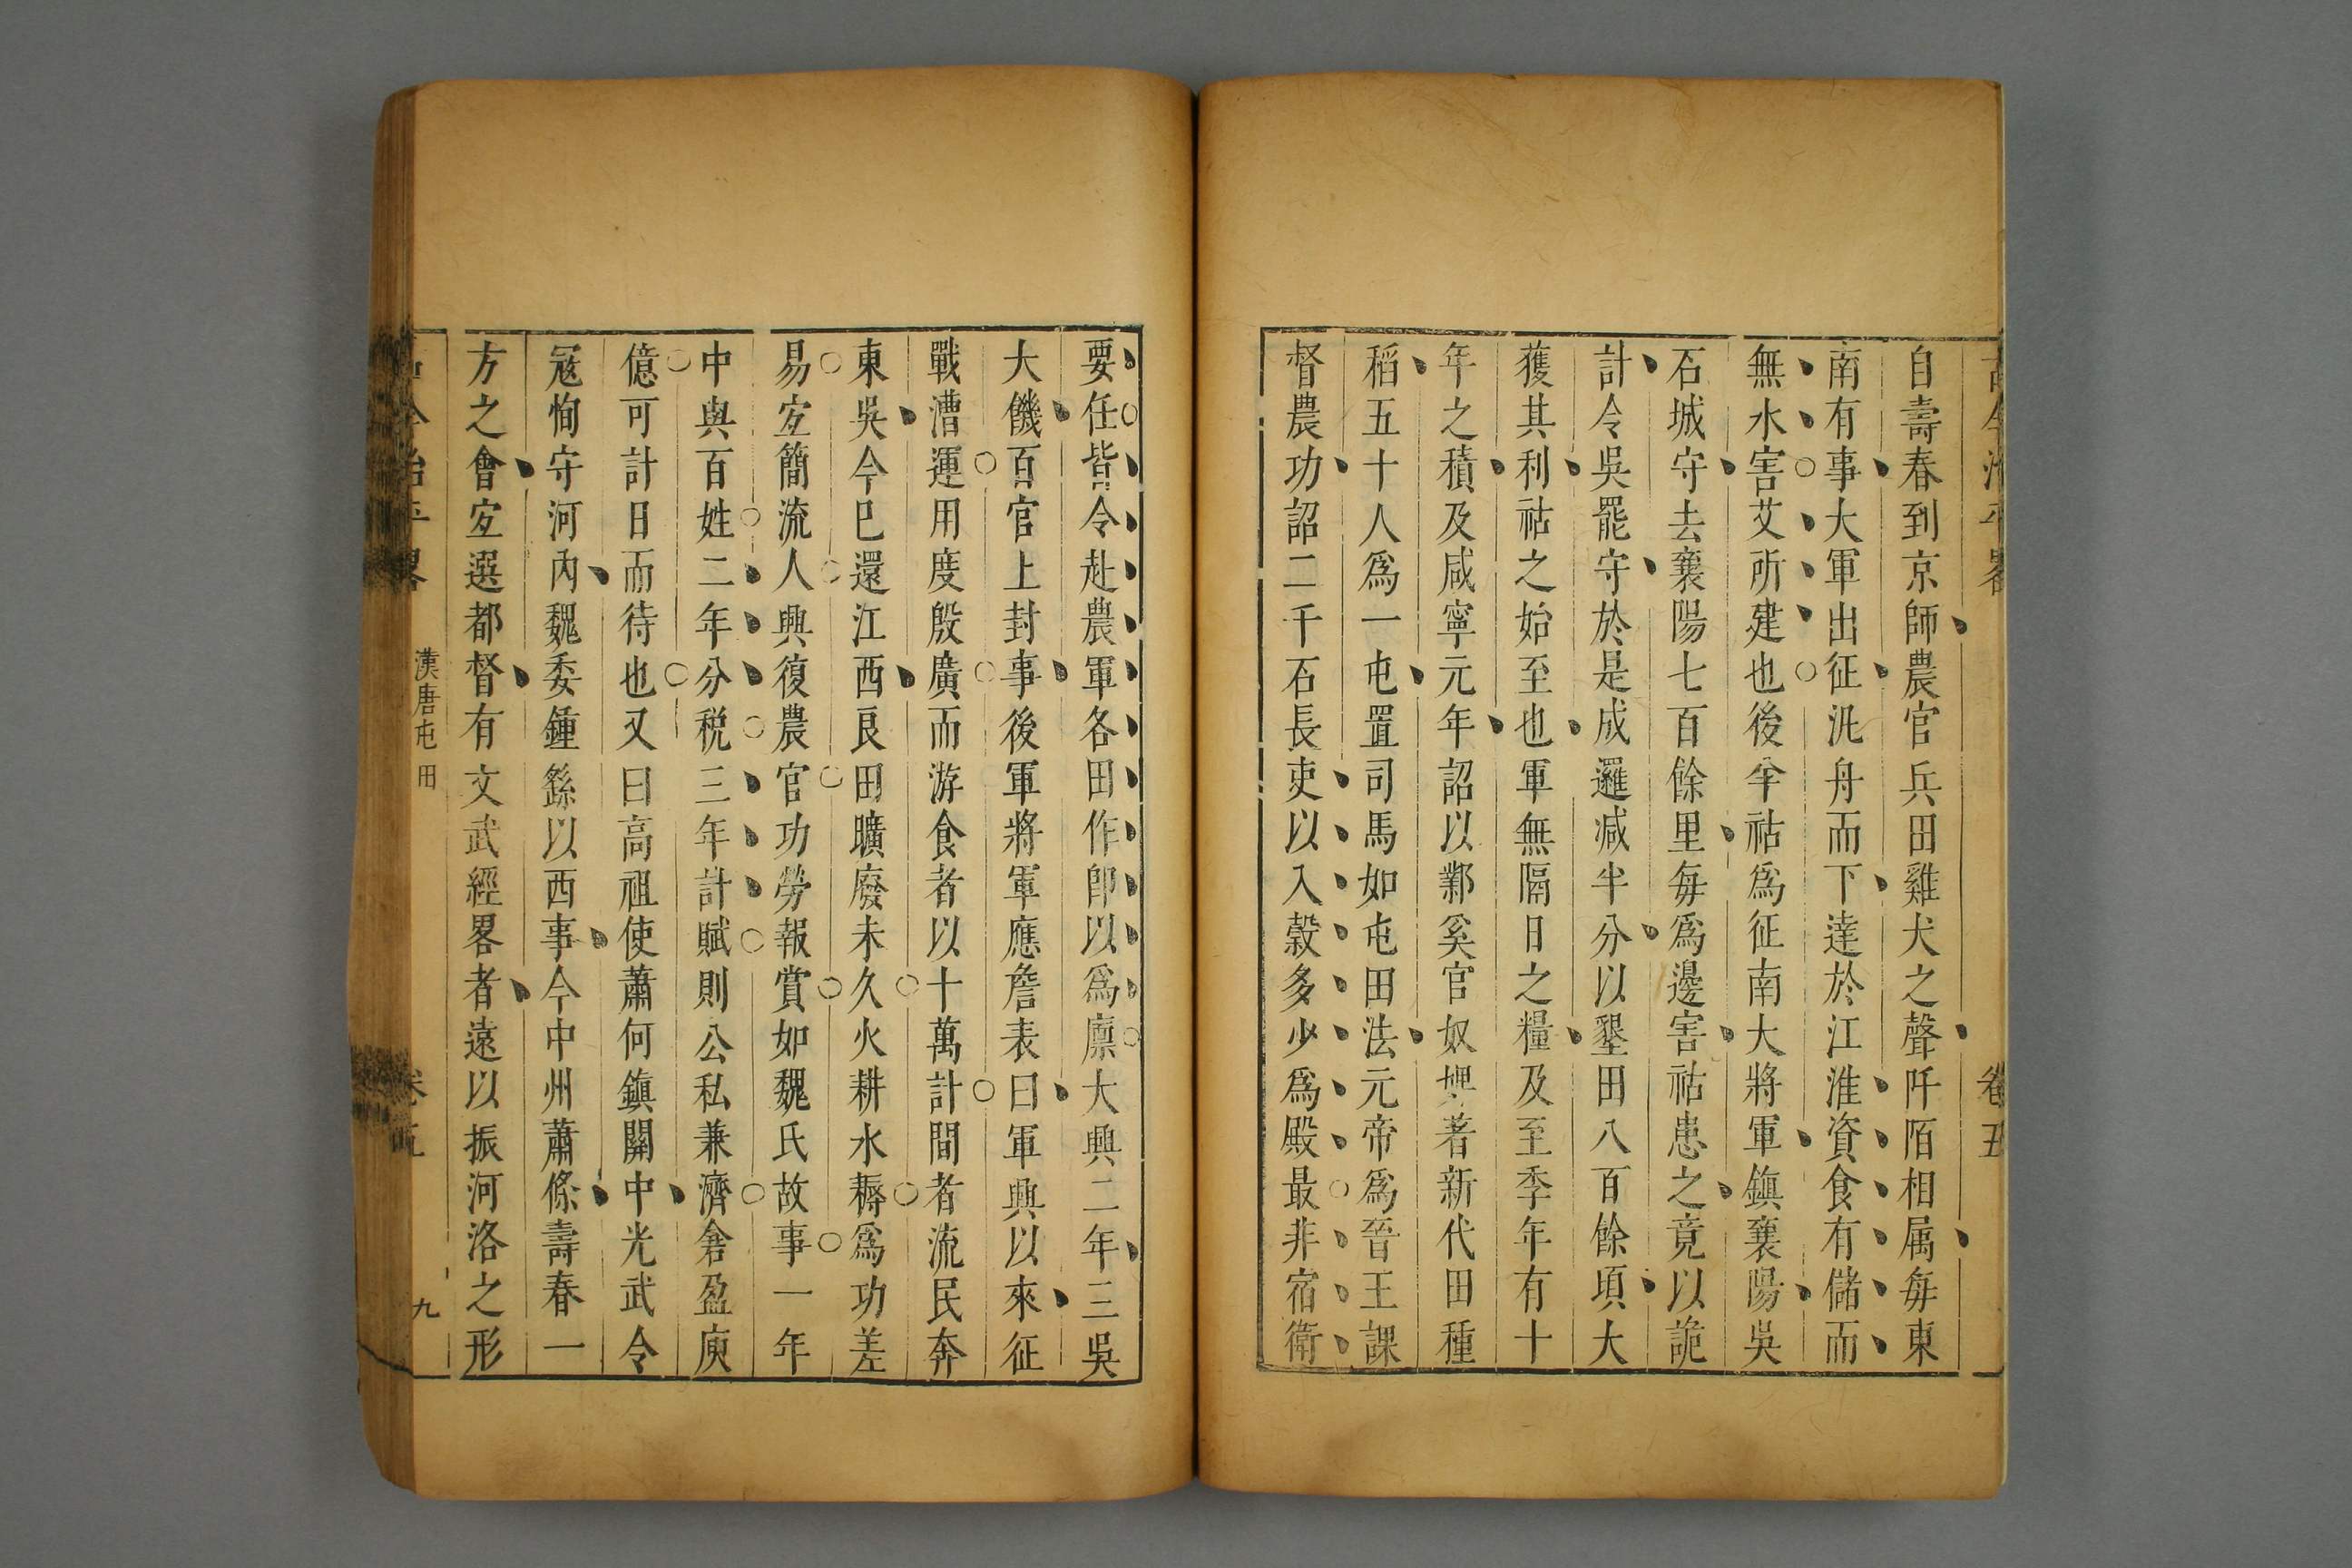 古今治平畧 卷五
自壽春到京師農官兵田雞犬之聲阡陌相属每東
南有事大軍出征汎舟而下達於江淮資食有儲而
無水害艾所建也後羊祜爲征南大將軍鎮襄陽吳
石城守去襄陽七百餘里每爲邊害祜患之竟以詭
計令吳罷守於是戍邏減半分以墾田八百餘頃大
獲其利祜之始至也軍無隔日之糧及至季年有十
年之積及咸寧元年詔以鄴奚官奴 著新代田種
稻五十人爲一屯置司馬如屯田法元帝爲晉王課
督農功詔二千石長吏以入穀多少爲殿最非宿衛
要任皆令赴農軍各田作卽以爲廪大興二年三吳
大饑百官上封事後軍將軍應詹表曰軍興以來征
戰漕運用度殷廣而游食者以十萬計間者流民奔
東吳今巳還江西良田曠廢未久火耕水耨爲功差
易宐簡流人興復農官功勞報賞如魏氏故事一年
中與百姓二年分税三年計賦則公私兼濟倉盈庾
億可計日而待也又曰高祖使蕭何鎮關中光武令
冦恂守河内魏委鍾繇以西事今中州蕭條壽春一
方之會宐選都督有文武經畧者遠以振河洛之形
古今治平畧 漢唐屯田 卷五 九